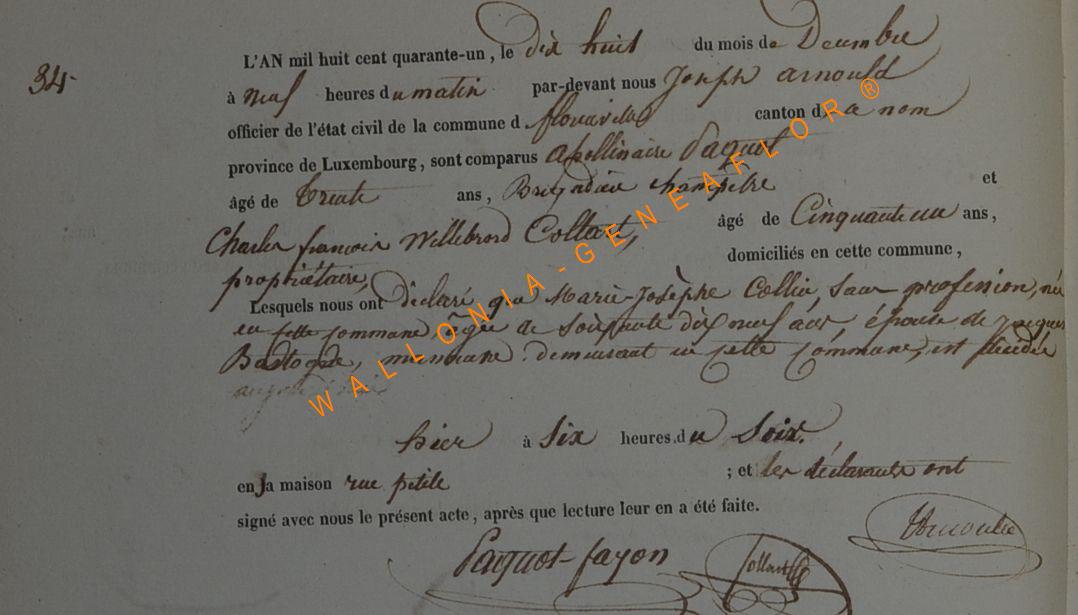 34
L'AN mil huit cent quarante-un, le dix huit du mois de Decembre
à neuf heures du matin par-devant nous Joseph Arnould
officier de l'état civil de la commune d florenville canton d e nom
province de Luxembourg, sont comparus apollinaire Paquot
âgé de trente ans, Brigadier champetre et
Charles francois Willebrord Collart, âgé de Cinquante un ans,
propriétaire, domiciliés en cette commune,
Lesquels nous ont déclaré que Marie-Josèphe Collin, sans profession, née
en cette commune, âgée de soixante dix neuf ans, épouse de Jacques
Bastogne, demeurant en cette commune, est décédée
hier à six heures du soir.
en la maison rue petite ; et les déclarants ont
signé avec nous le présent acte, après que lecture leur en a été faite.
Paquot-fayon Collart Arnould
WALLONIA-GENEAFLOR®